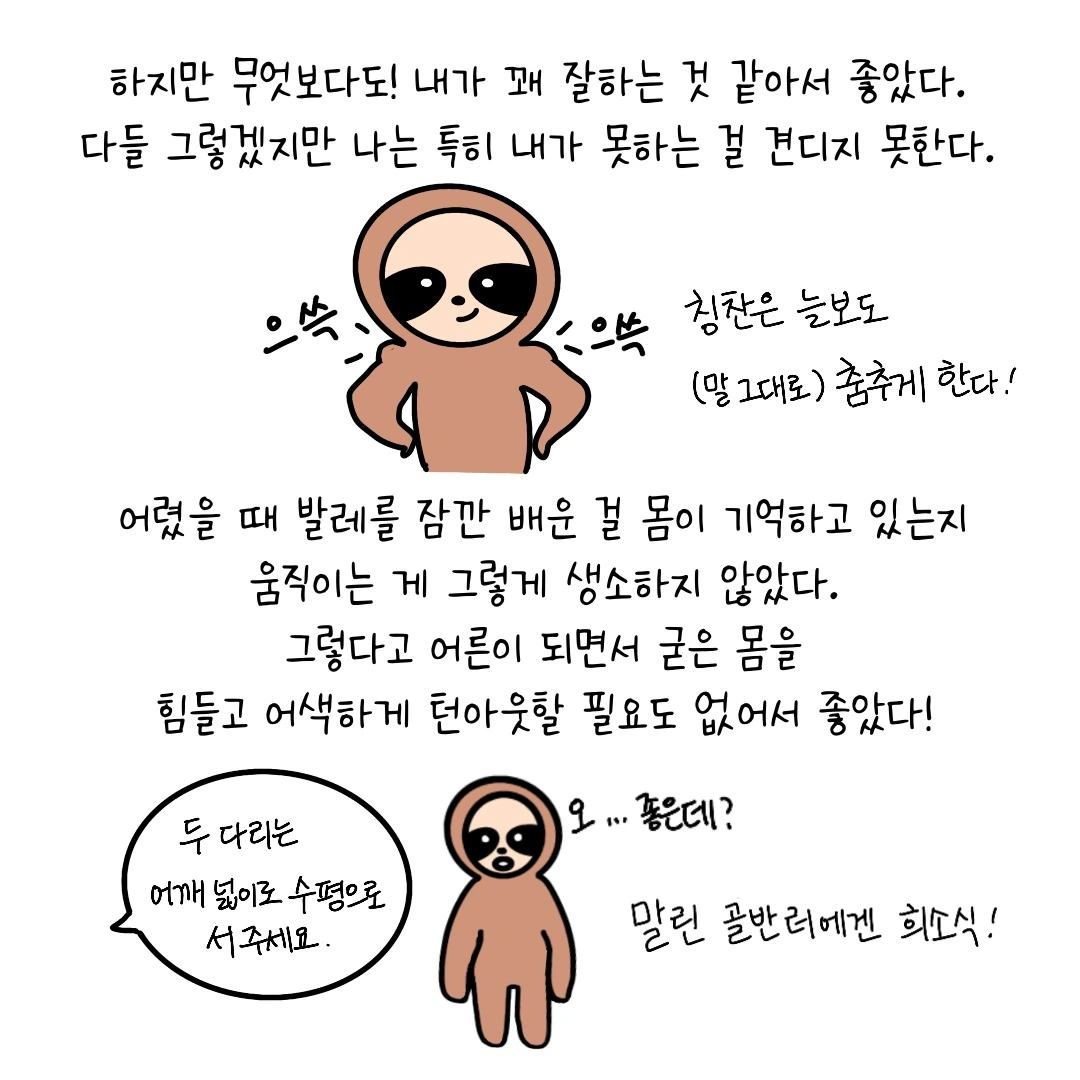 하지만 무엇보다도! 내가 꽤 잘하는 것 같아서 좋았다.
다들 그렇겠지만 나는 특히 내가 못하는 걸 견디지 못한다.
으쓱
으쓱
칭찬은 늘보도
(말 그대로) 춤추게 한다!
어렸을 때 발레를 잠깐 배운 걸 몸이 기억하고 있는지
움직이는 게 그렇게 생소하지 않았다.
그렇다고 어른이 되면서 굳은 몸을
힘들고 어색하게 턴아웃할 필요도 없어서 좋았다!
두 다리는
어깨 넓이로 수평으로
서 주세요.
오... 좋은데?
말린 골반러에겐 희소식!